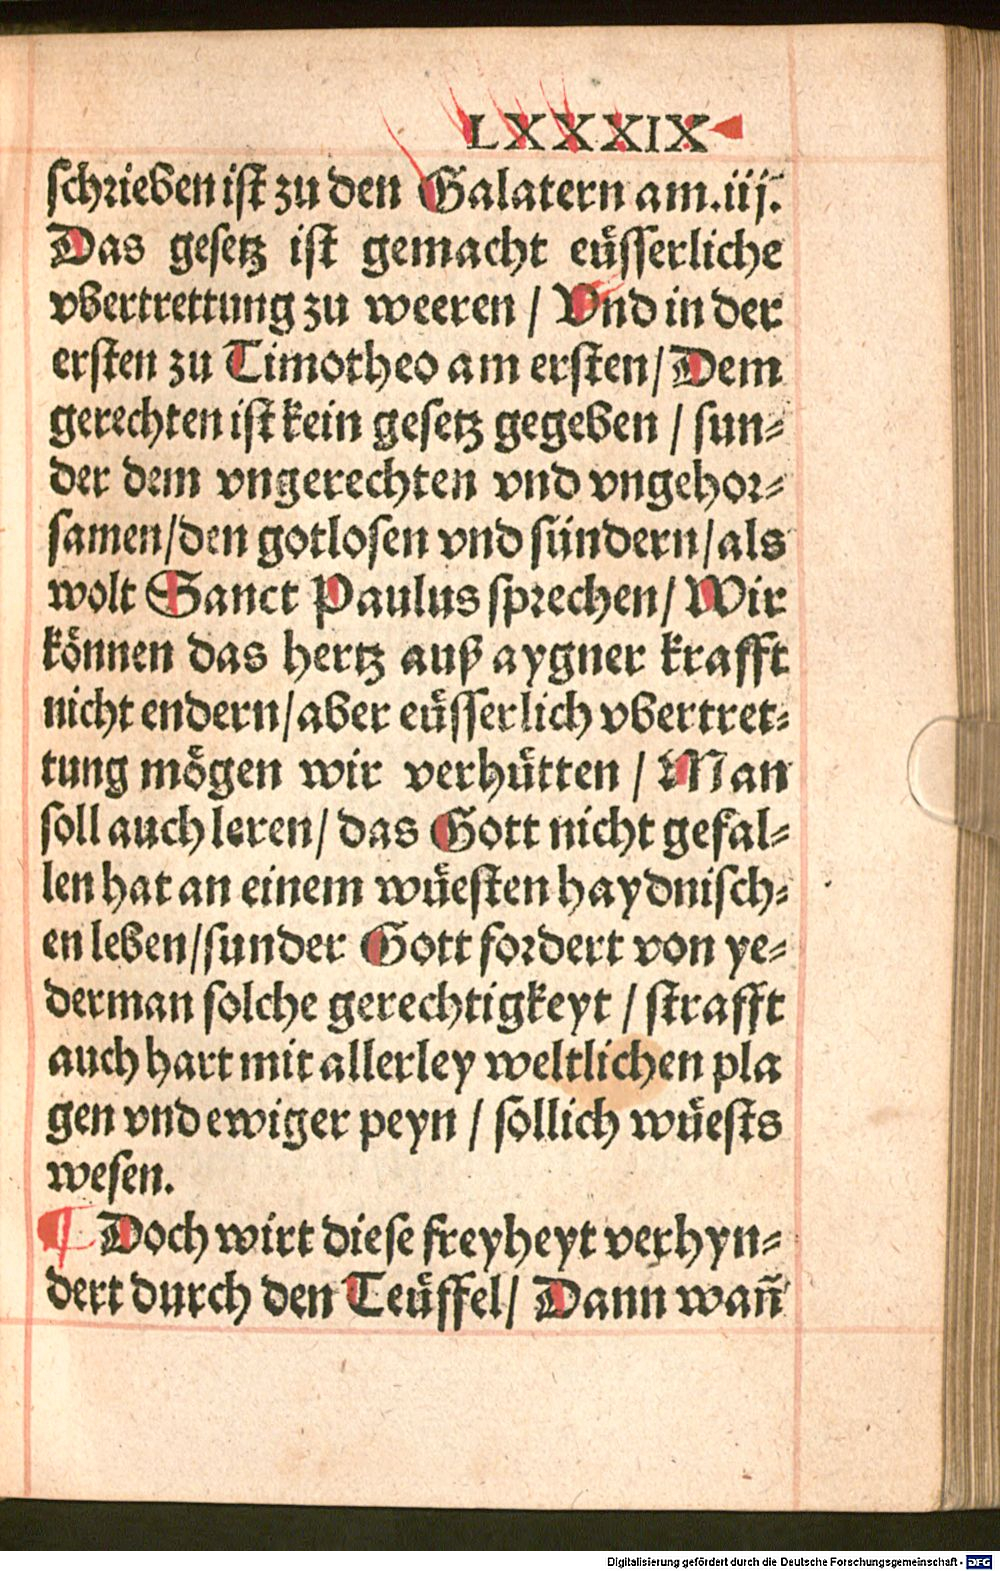 LXXXIX
schrieben ist zu den Galatern am.iij.
Das gesetz ist gemacht eüsserliche
vbertrettung zu weeren / Vnd in der
ersten zu Timotheo am ersten / Dem
gerechten ist kein gesetz gegeben / sun-
der dem vngerechten vnd vngehor-
samen / den gotlosen vnd sündern / als
wolt Sanct Paulus sprechen / Wir
können das hertz auß aygner krafft
nicht endern / aber eüsserlich vbertret-
tung mögen wir verhütten / Man
soll auch leren / das Gott nicht gefal-
len hat an einem wüesten haydnisch-
en leben / sunder Gott fordert von ye-
derman solche gerechtigkeyt / strafft
auch hart mit allerley weltlichen pla
gen vnd ewiger peyn / sollich wüests
wesen.
¶ Doch wirt diese freyheyt verhyn-
dert durch den Teüffel / Dann wañ
Digitalisierung gefördert durch die Deutsche Forschungsgemeinschaft - DFG